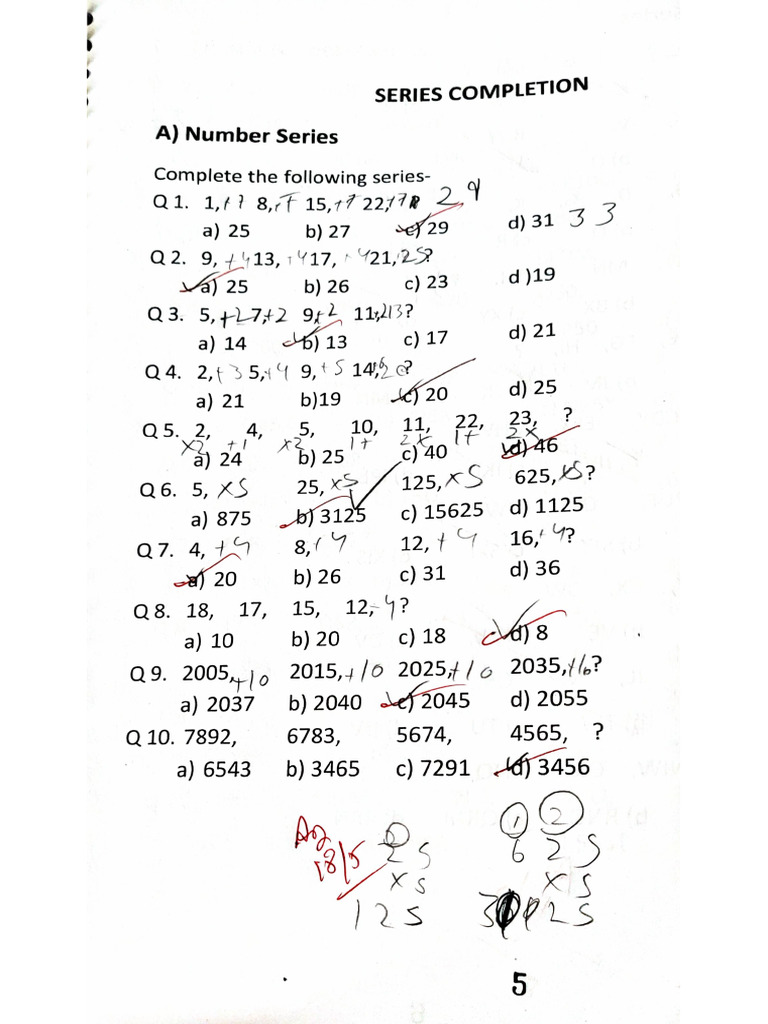 SERIES COMPLETION
A) Number Series
Complete the following series-
Q 1. 1, +7 8, +7 15, +7 22, +7 29
a) 25 b) 27 c) 29 d) 31 33
Q 2. 9, +4 13, +4 17, +4 21, 25?
a) 25 b) 26 c) 23 d )19
Q 3. 5, +2 7, +2 9, +2 11, 13?
a) 14 b) 13 c) 17 d) 21
Q 4. 2, +3 5, +4 9, +5 14, 20?
a) 21 b)19 c) 20 d) 25
Q 5. 2, 4, 5, 10, 11, 22, 23, ?
x2 +1 x2 1+ 2x 1+ 2x
a) 24 b) 25 c) 40 d) 46
Q 6. 5, x5 25, x5 125, x5 625, x5?
a) 875 b) 3125 c) 15625 d) 1125
Q 7. 4, +4 8, +4 12, +4 16, +4?
a) 20 b) 26 c) 31 d) 36
Q 8. 18, 17, 15, 12, -4?
a) 10 b) 20 c) 18 d) 8
Q 9. 2005, +10 2015, +10 2025, +10 2035, +10?
a) 2037 b) 2040 c) 2045 d) 2055
Q 10. 7892, 6783, 5674, 4565, ?
a) 6543 b) 3465 c) 7291 d) 3456
2 1 2
25 625
x5 x5
125 3125
5